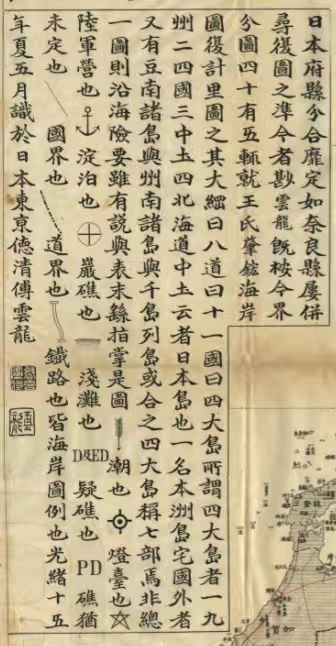 日本府縣分合靡定如奈良縣屢併
尋復圖之準今者尠雲龍旣按今界
分圖四十有五輒就王氏肇鋐海岸
圖復計里圖之其大綱曰八道曰十一國曰四大島所謂四大島者一九
州二四國三中土四北海道中土云者日本島也一名本洲島宅國外者
又有豆南諸島與州南諸島與千島列島或合之四大島稱七部焉非總
一圖則沿海險要雖有說與表末繇指掌是圖 潮也 燈臺也
陸軍營也 淀泊也 巖礁也 淺灘也 D&ED 疑礁也 PD 礁猶
未定也 國界也 道界也 鐵路也皆海岸圖例也光緒十五
年夏五月識於日本東亰德清傅雲龍
加賀